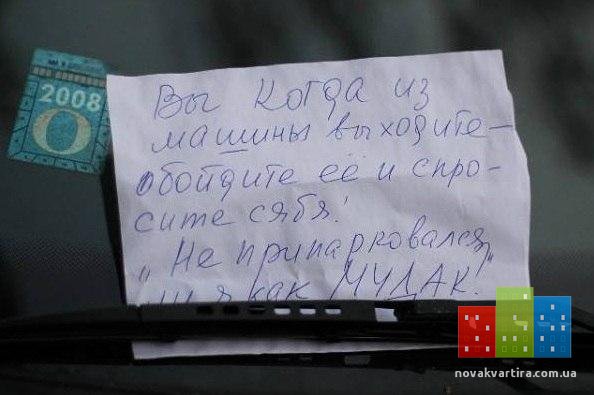 2008
O
Вы когда из
машины выходите—
обойдите её и спро-
сите сябя!
„Не припарковался
ли я как МУДАК!"
novakvartira.com.ua